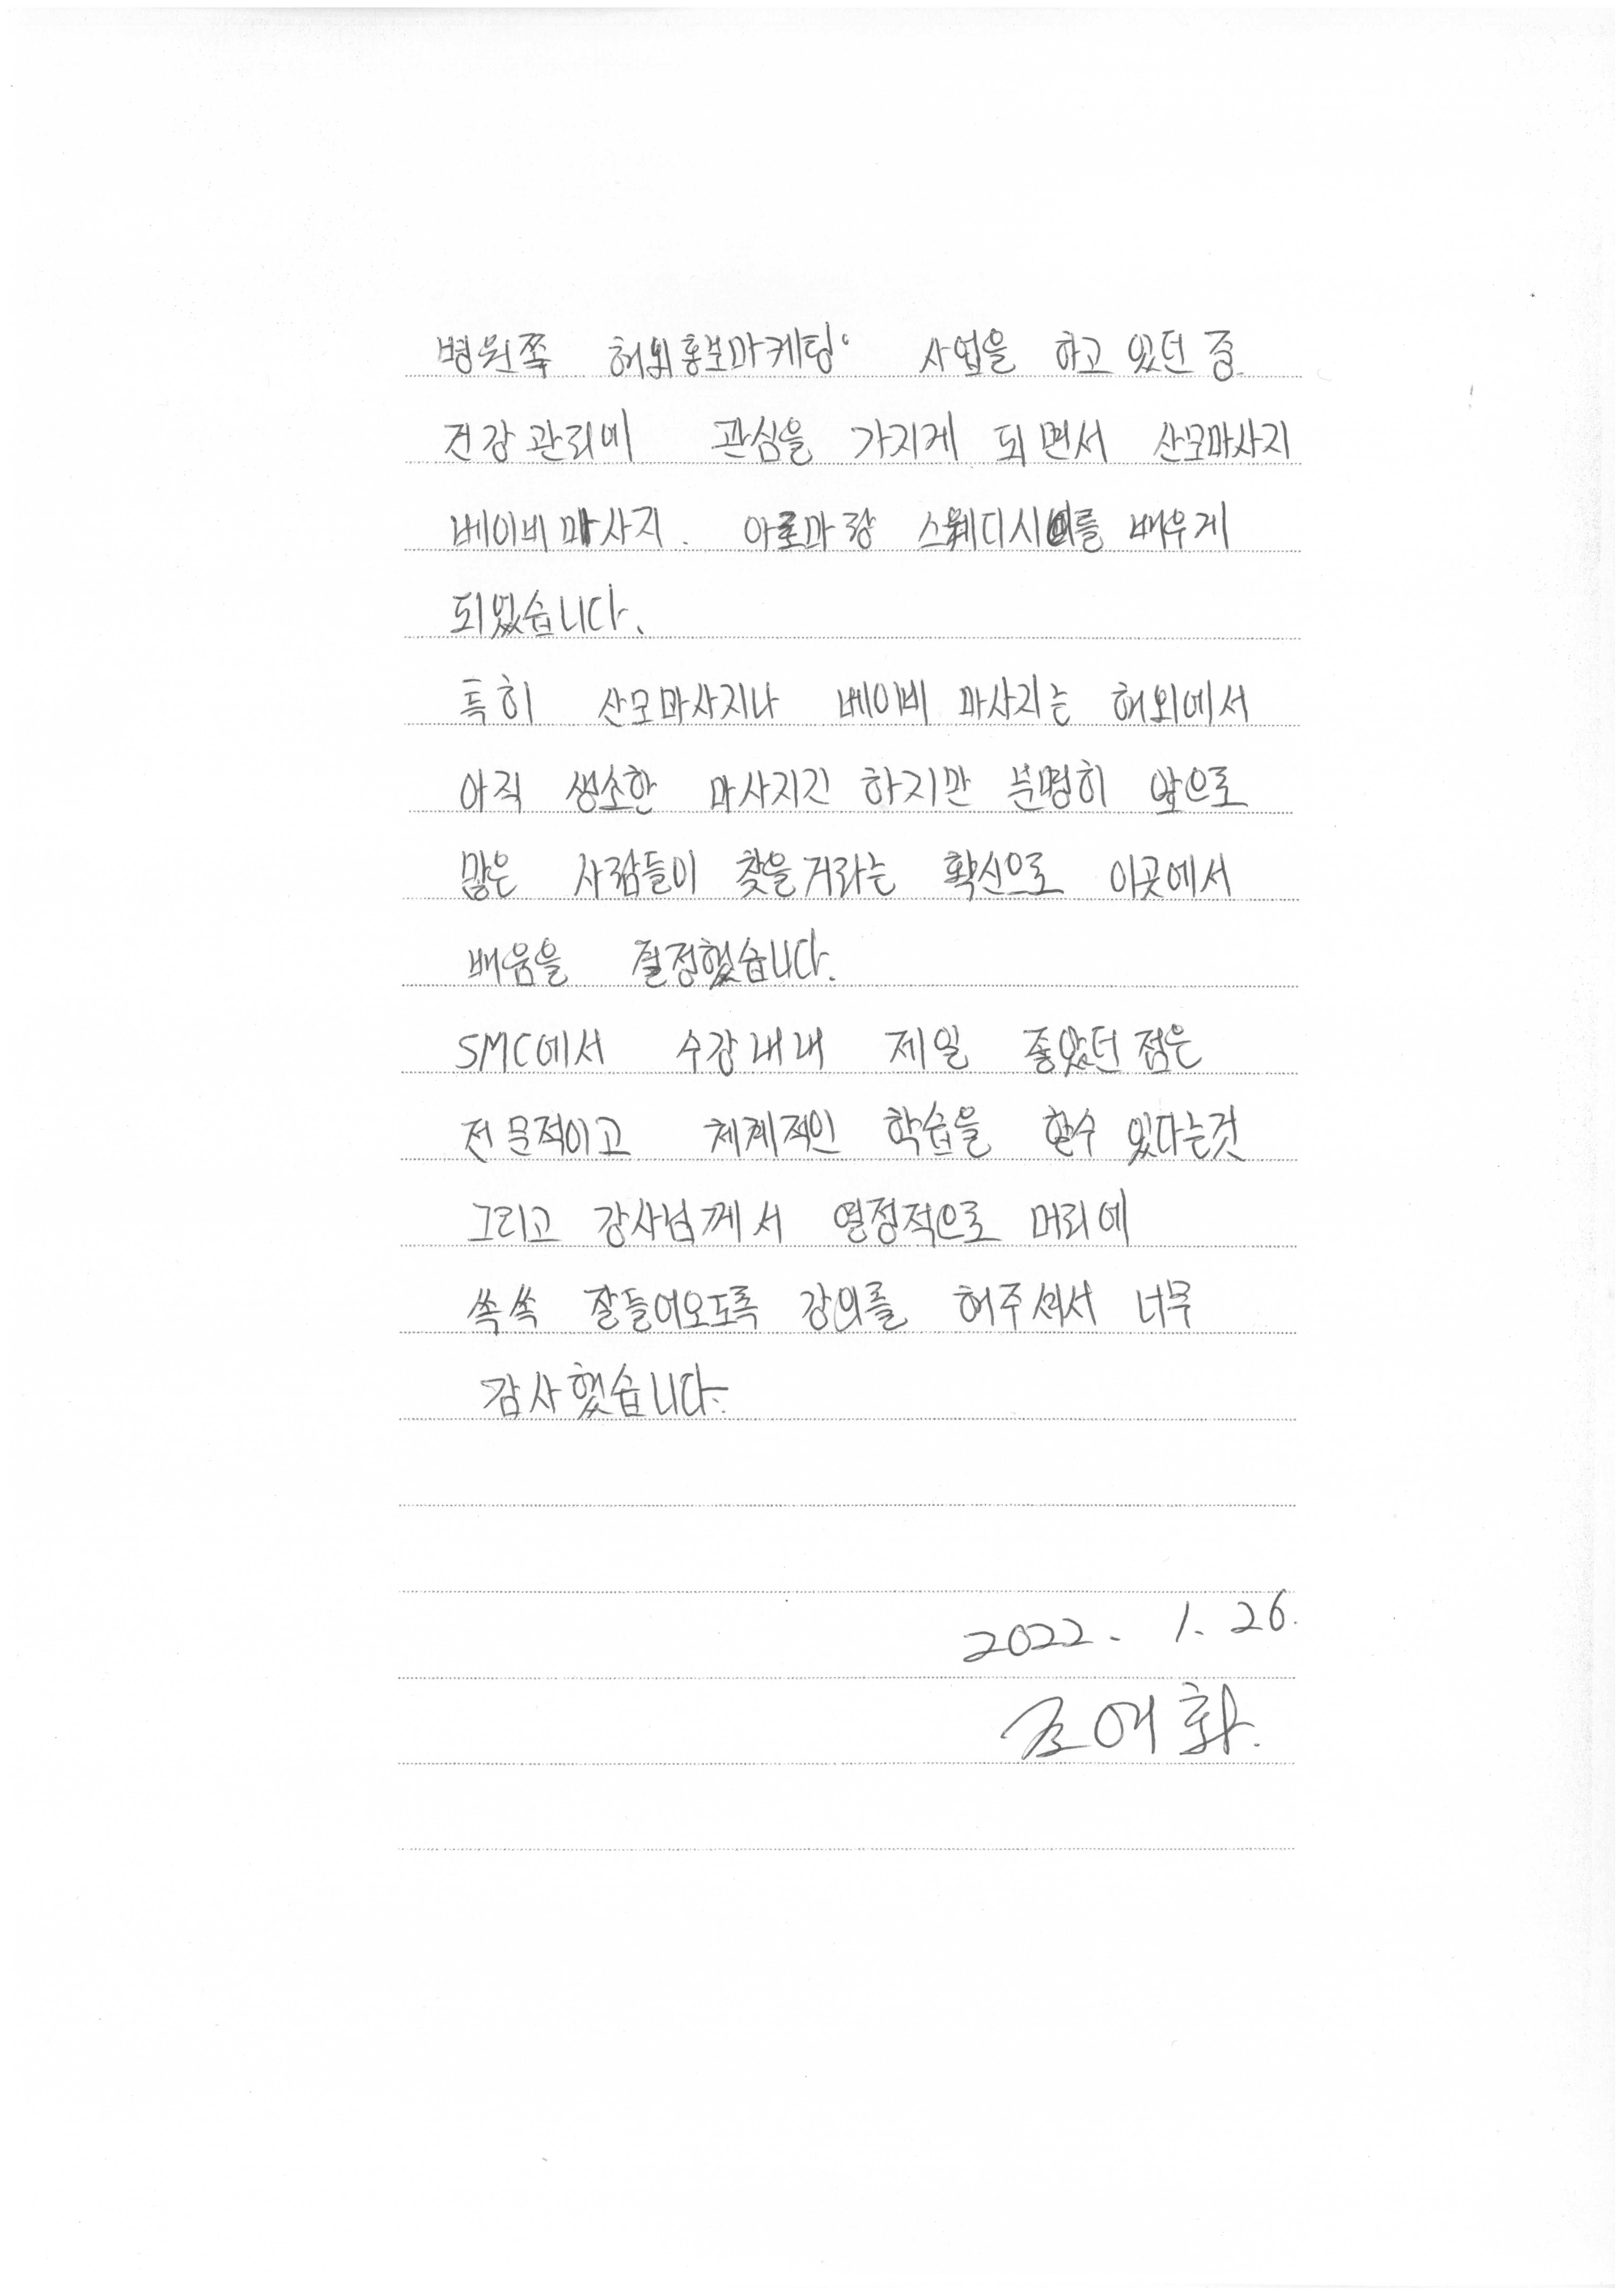 병원쪽 해외홍보마케팅 사업을 하고 있던 중
건강관리에 관심을 가지게 되면서 산모마사지
베이비마사지. 아로마랑 스웨디시를 배우게
되었습니다.
특히 산모마사지나 베이비 마사지는 해외에서
아직 생소한 마사지긴 하지만 분명히 앞으로
많은 사람들이 찾을거라는 확신으로 이곳에서
배움을 결정했습니다.
SMC에서 수강내내 제일 좋았던 점은
전문적이고 체계적인 학습을 할수 있다는것
그리고 강사님께서 열정적으로 머리에
쏙쏙 잘들어오도록 강의를 해주셔서 너무
감사했습니다.
2022. 1. 26.
조여화.